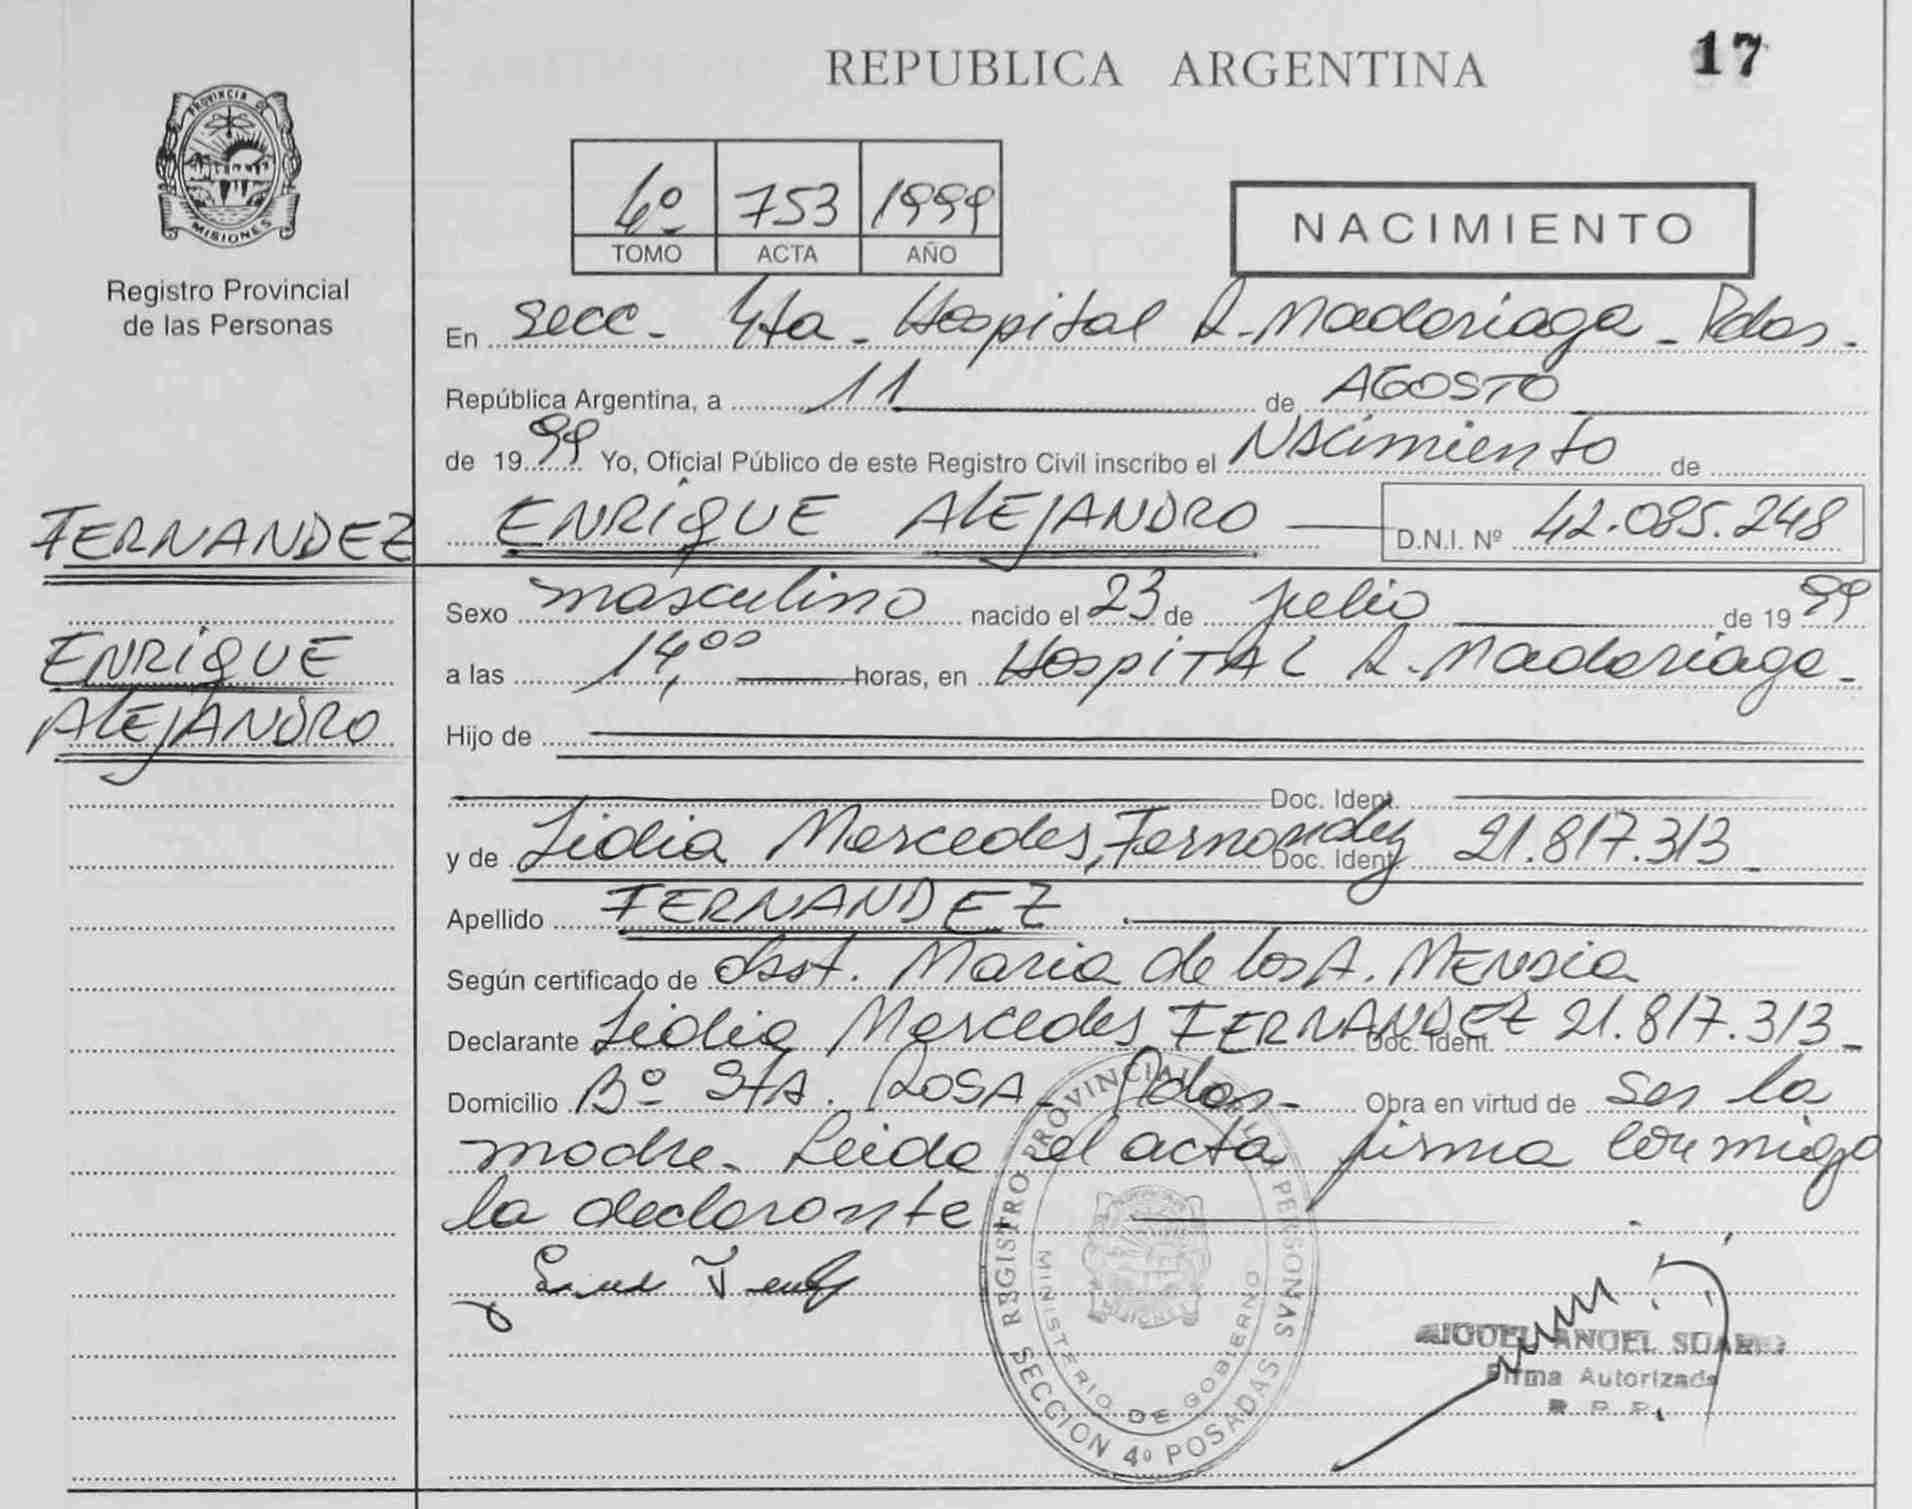 REPUBLICA ARGENTINA
17
PROVINCIA DE
MISIONES
Registro Provincial
de las Personas
4º 753 1999
TOMO ACTA AÑO
NACIMIENTO
En Secc. 4ta. Hospital R. Madariaga - Pdas.
República Argentina, a 11 de AGOSTO
de 1999 Yo, Oficial Público de este Registro Civil inscribo el Nacimiento de
ENRIQUE ALEJANDRO D.N.I. Nº 42.085.248
FERNANDEZ
ENRIQUE
ALEJANDRO
Sexo masculino nacido el 23 de julio de 1999
a las 14,00 horas, en HOSPITAL R. Madariaga.
Hijo de
Doc. Ident.
y de Lidia Mercedes, Fernandez Doc. Ident. 21.817.313
Apellido FERNANDEZ
Según certificado de Obst. Maria de los A. MENDIA
Declarante Lidia Mercedes FERNANDEZ Doc. Ident. 21.817.313
Domicilio Bº STA. ROSA - Pdas - Obra en virtud de ser la
madre. Leida el acta firma conmigo
la declarante
REGISTRO PROVINCIAL DE LAS PERSONAS
MINISTERIO DE GOBIERNO
SECCION 4º POSADAS
MIGUEL ANGEL SUAREZ
Firma Autorizada
R. P. P.